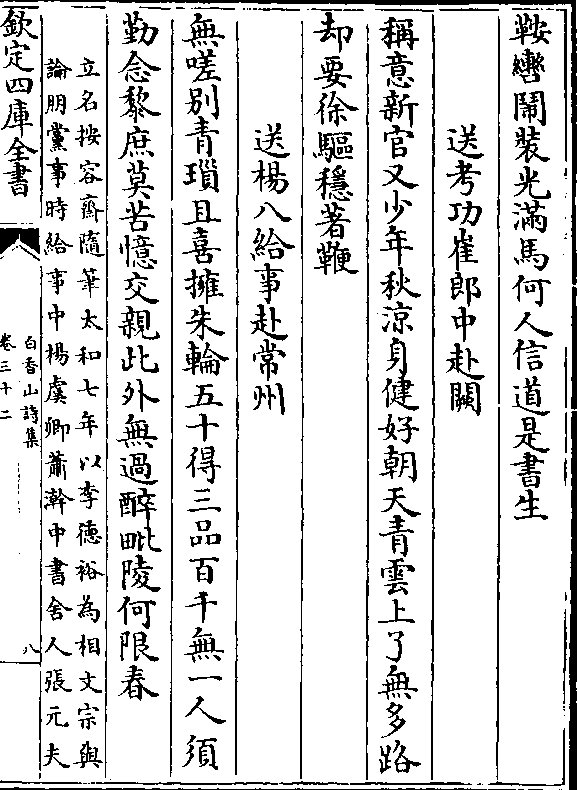 鞍轡鬧裝光滿馬何人信道是書生
送考功崔郎中赴闕
稱意新官又少年秋涼身健好朝天青雲上了無多路
却要徐驅穩著鞭
送楊八給事赴常州
無嗟别青瑣且喜擁朱輪五十得三品百千無一人須
勤念黎庶莫苦憶交親此外無過醉毗陵何限春
立名按容齋隨筆太和七年以李德裕為相文宗與
論朋黨事時給事中楊虞卿蕭澣中書舍人張元夫
欽定四庫全書
白香山詩集
卷三十二
八